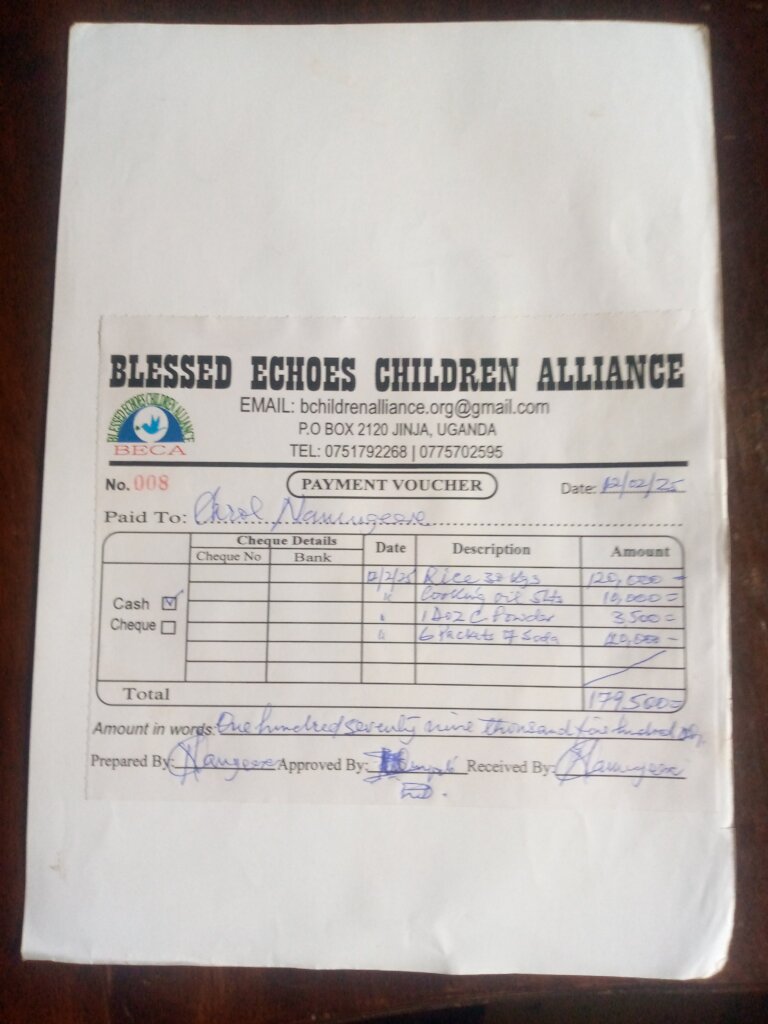 BLESSED ECHOES CHILDREN ALLIANCE
BLESSED ECHOES CHILDREN ALLIANCE
BECA
EMAIL: bchildrenalliance.org@gmail.com
P.O BOX 2120 JINJA, UGANDA
TEL: 0751792268 | 0775702595
No. 008 PAYMENT VOUCHER Date: 12/02/25
Paid To: Carol
Cheque Details Date Description Amount
Cheque No Bank
12/2/25 Rice 30 kgs 120,000 =
Cash " Cooking oil 5lts =
Cheque " 1 doz C. Powder 3,500 =
" 6 Packets Soda =
Total 179,500=
Amount in words: One hundred seventy nine thousand five hundred
Prepared By: Approved By: Received By: